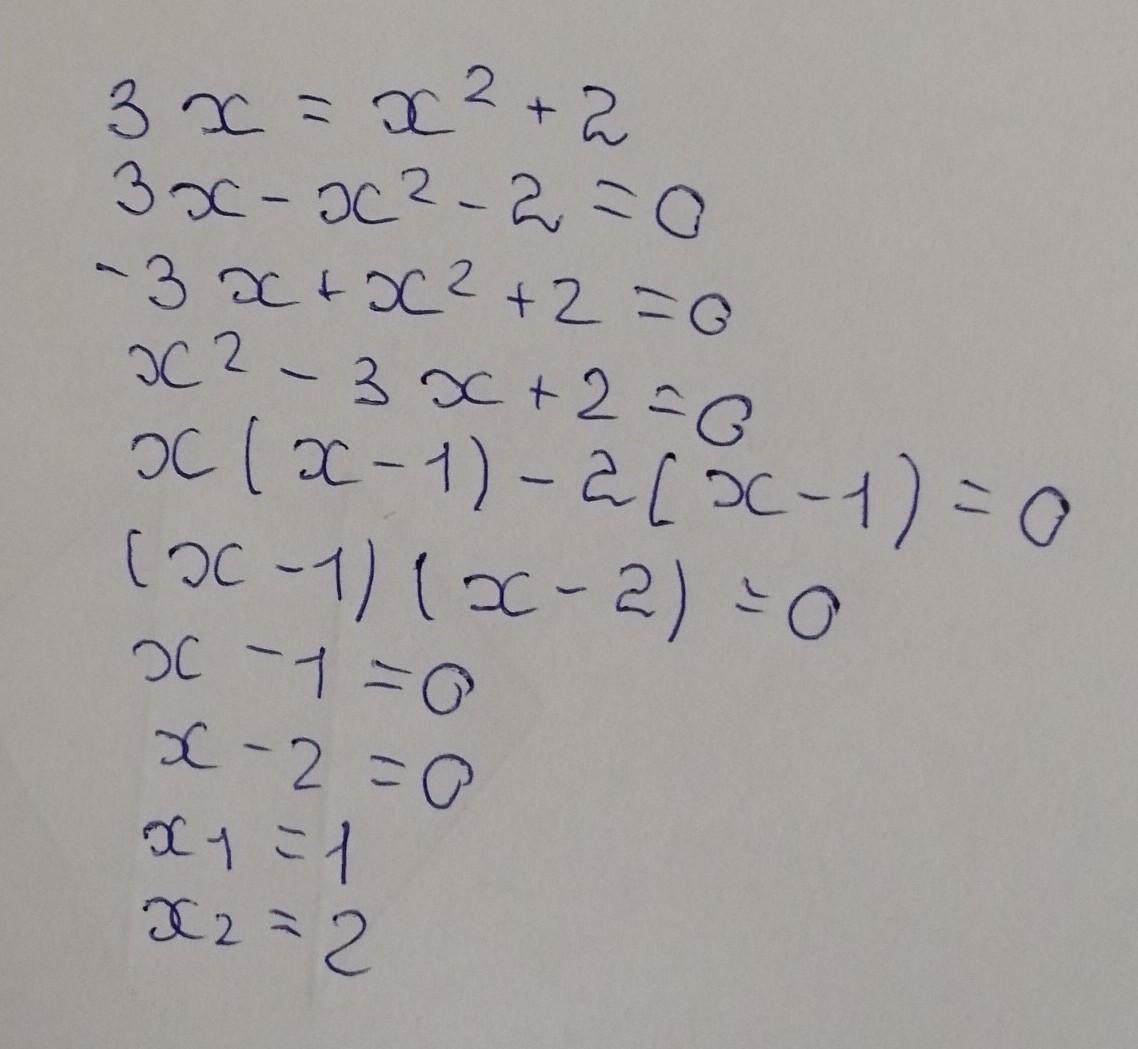 3x = x² + 2
3x - x² - 2 = 0
-3x + x² + 2 = 0
x² - 3x + 2 = 0
x(x-1) - 2(x-1) = 0
(x-1)(x-2) = 0
x - 1 = 0
x - 2 = 0
x₁ = 1
x₂ = 2